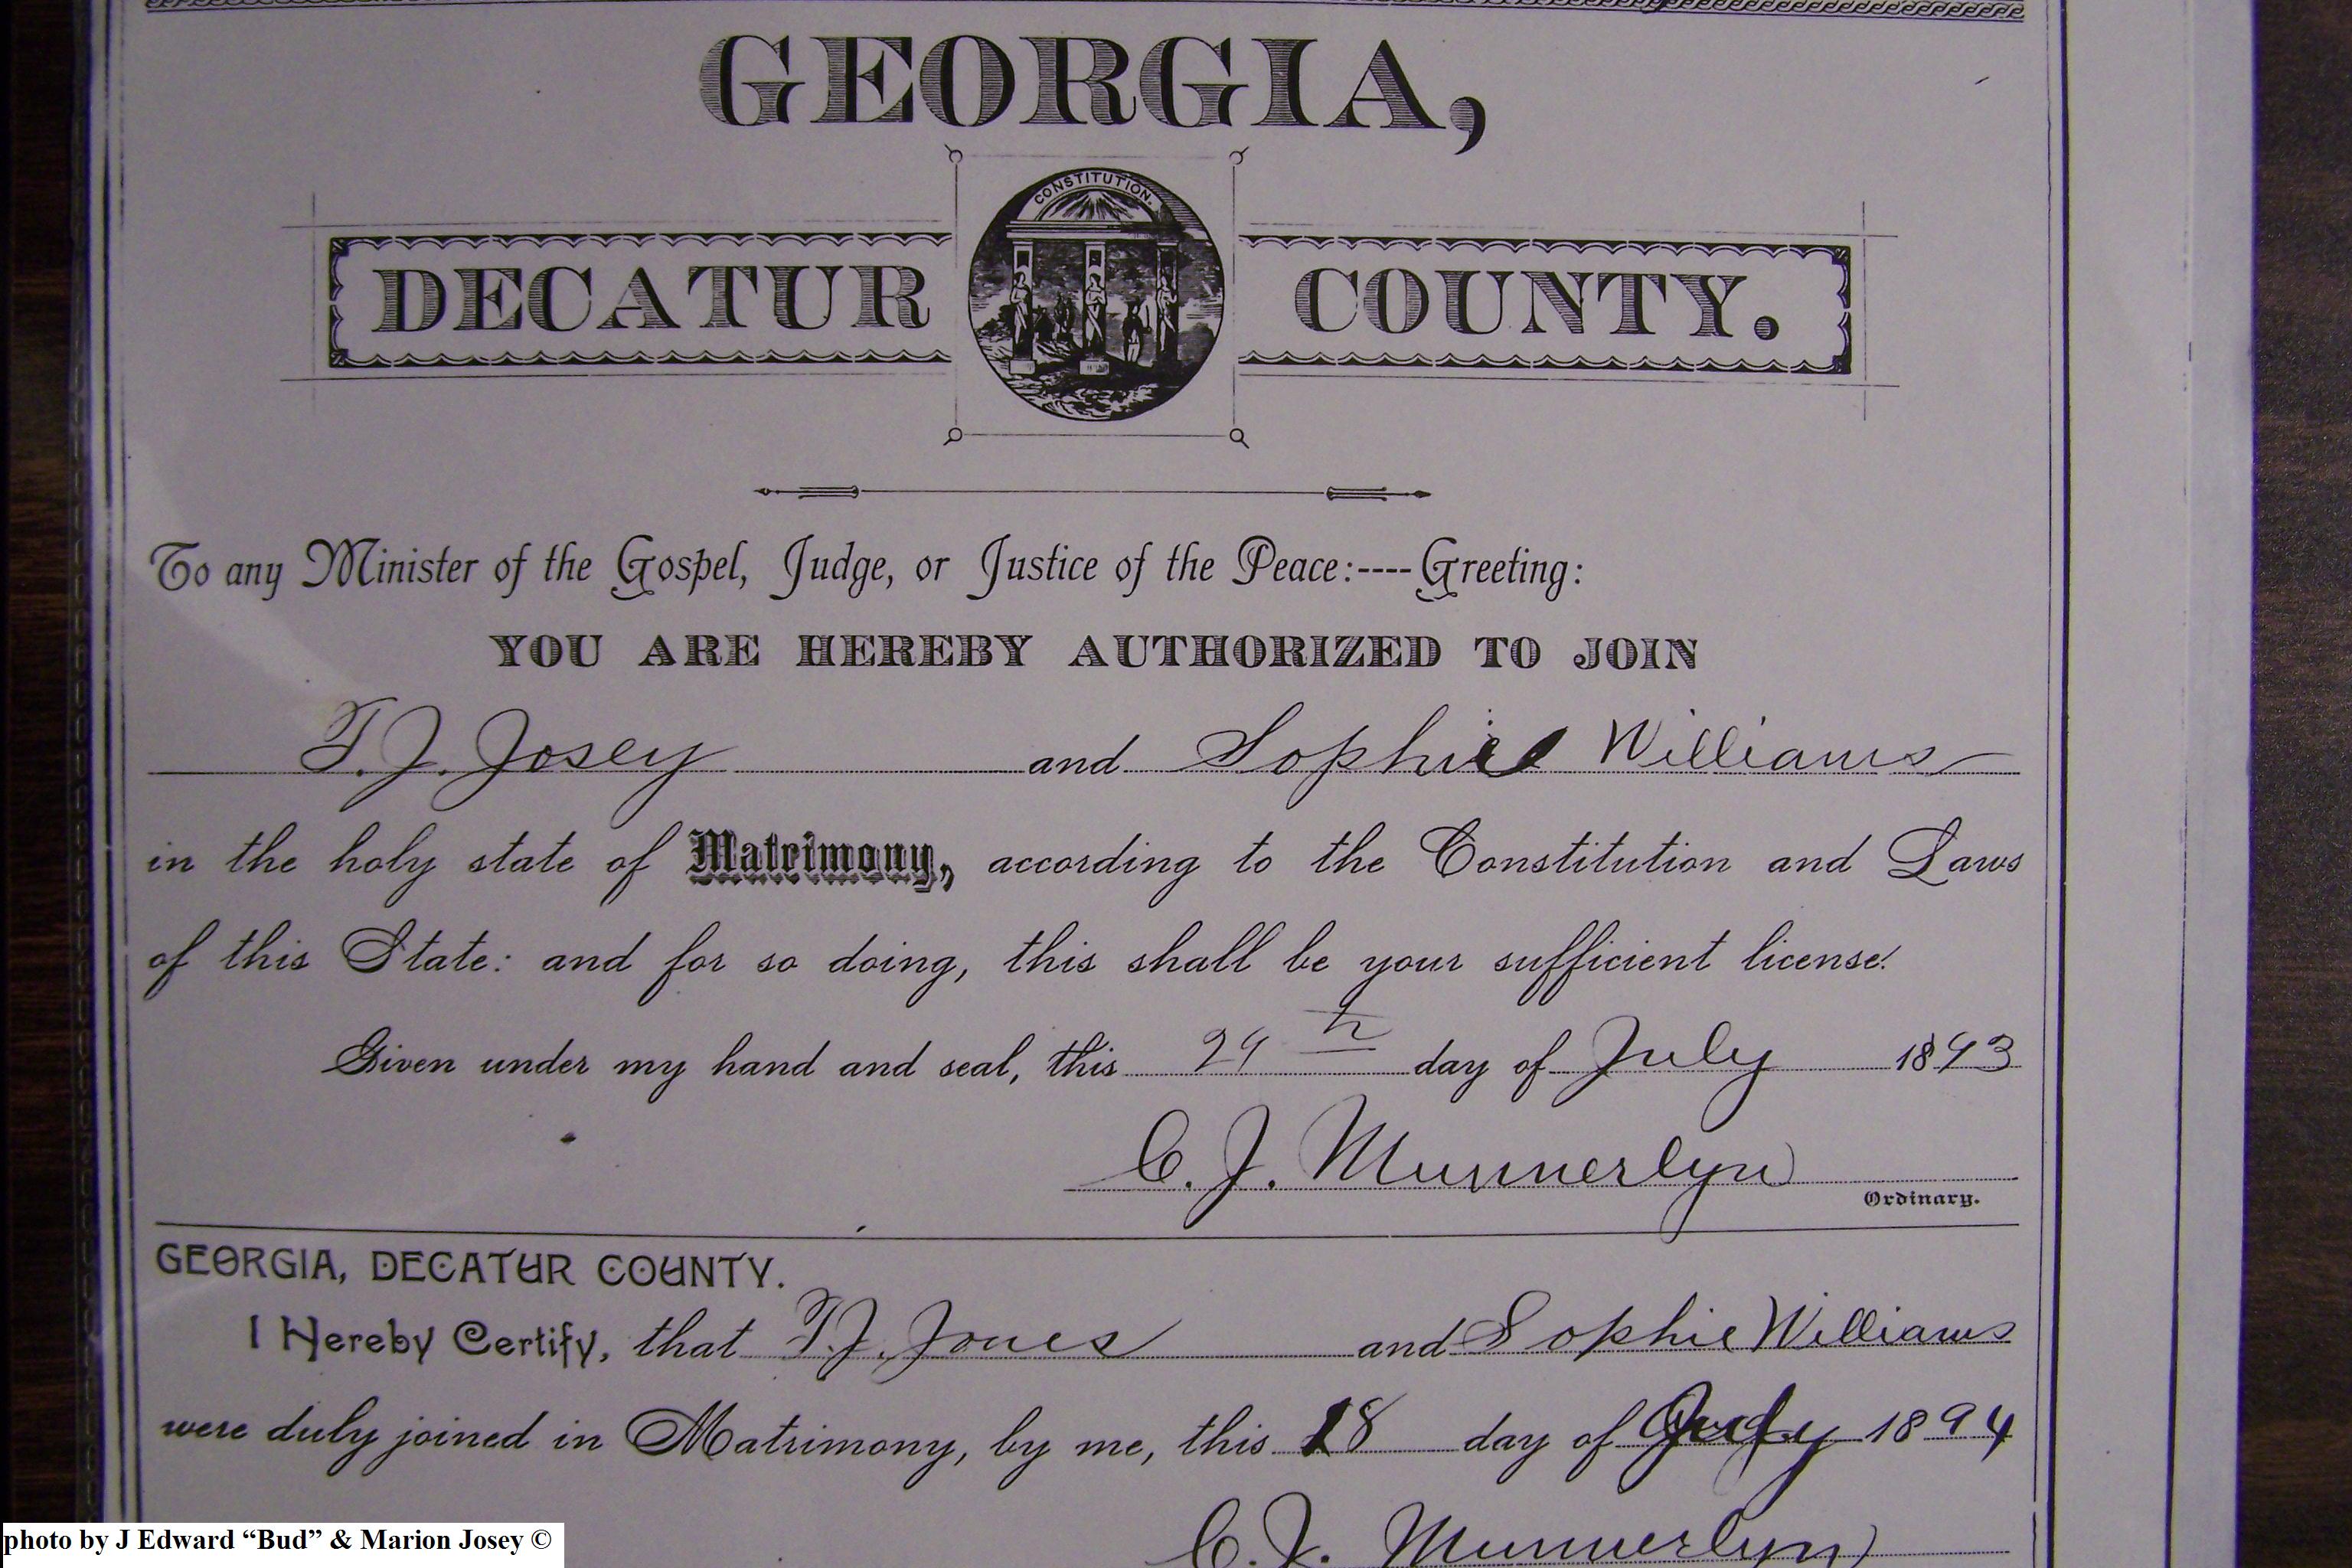 GEORGIA,
CONSTITUTION.
DECATUR COUNTY.
To any Minister of the Gospel, Judge, or Justice of the Peace:----Greeting:
YOU ARE HEREBY AUTHORIZED TO JOIN
T. J. Josey and Sophie Williams
in the holy state of Matrimony, according to the Constitution and Laws
of this State: and for so doing, this shall be your sufficient license.
Given under my hand and seal, this 29th day of July 1893
C. J. Munnerlyn
Ordinary.
GEORGIA, DECATUR COUNTY.
I Hereby Certify, that T. J. Jones and Sophie Williams
were duly joined in Matrimony, by me, this 18 day of July 1894
C. J. Munnerlyn
photo by J Edward “Bud” & Marion Josey ©